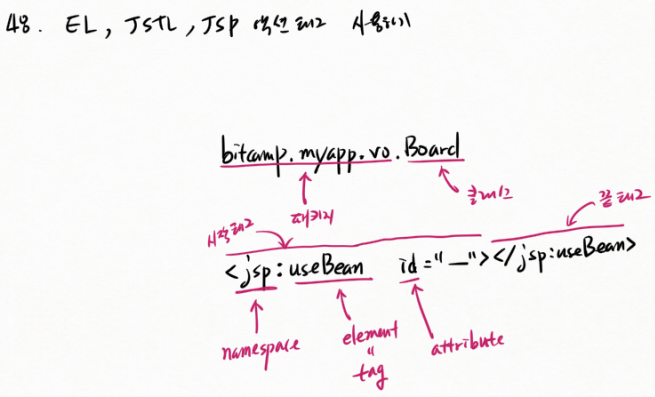 48. EL, JSTL, JSP 액션 태그 사용하기
bitcamp.myapp.vo.Board
패키지
클래스
시작태그
끝태그
<jsp:useBean id="—"></jsp:useBean>
namespace
element
"
tag
attribute